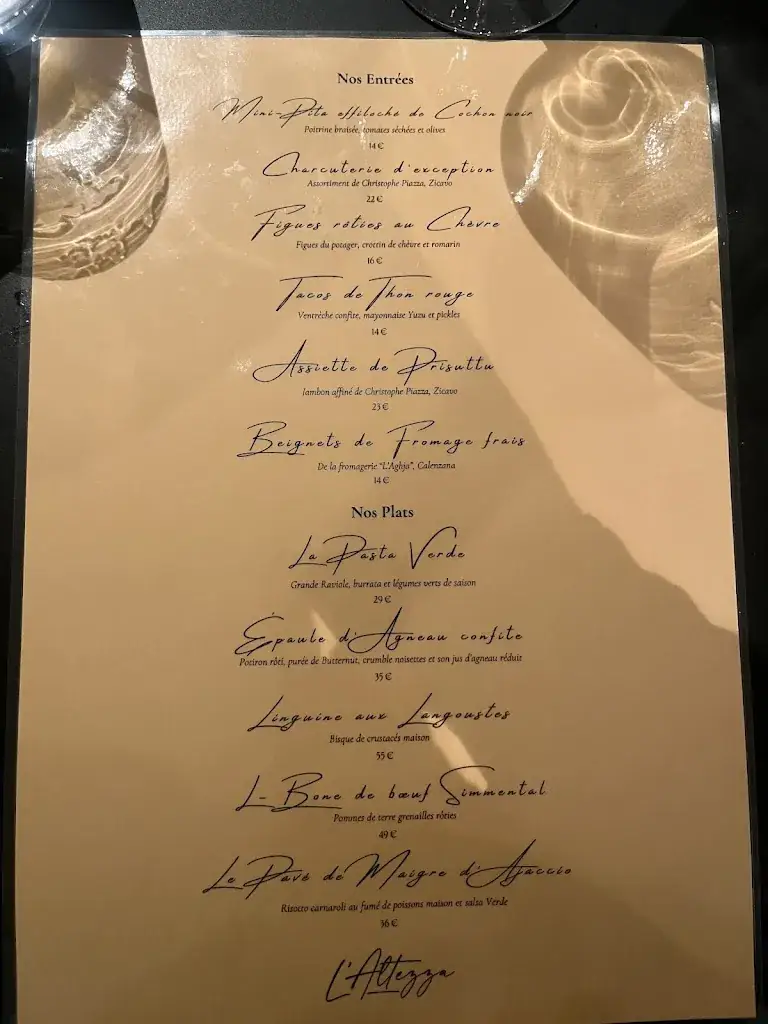 Nos Entrées
Mini-Pita effiloché de Cochon noir
Poitrine braisée, tomates séchées et olives
14 €
Charcuterie d'exception
Assortiment de Christophe Piazza, Zicavo
22 €
Figues rôties au Chèvre
Figues du potager, crottin de chèvre et romarin
16 €
Tacos de Thon rouge
Ventrèche confite, mayonnaise Yuzu et pickles
14 €
Assiette de Prisuttu
Jambon affiné de Christophe Piazza, Zicavo
23 €
Beignets de Fromage frais
De la fromagerie "L'Aghja", Calenzana
14 €
Nos Plats
La Pasta Verde
Grande Raviole, burrata et légumes verts de saison
29 €
Épaule d'Agneau confite
Potiron rôti, purée de Butternut, crumble noisettes et son jus d'agneau réduit
35 €
Linguine aux Langoustes
Bisque de crustacés maison
55 €
L-Bone de bœuf Simmental
Pommes de terre grenailles rôties
49 €
Le Pavé de Maigre d'Ajaccio
Risotto carnaroli au fumé de poissons maison et salsa Verde
36 €
L'Altezza